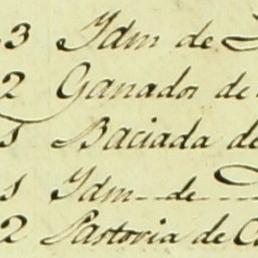 3 Idm de
2 Ganados de
s Baciada de
s Idm de
2 Pastoria de